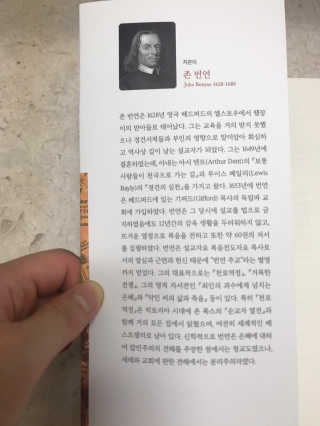 지은이
존 번연
John Bunyan 1628-1688
존 번연은 1628년 영국 베드퍼드의 엘스토우에서 땜장
이의 맏아들로 태어났다. 그는 교육을 거의 받지 못했
으나 청건서적들과 부인의 영향으로 말미암아 회심하
고 역사상 길이 남는 설교자가 되었다. 그는 1649년에
결혼하였는데, 아내는 아서 덴트(Arthur Dent)의 『보통
사람들이 천국으로 가는 길』과 루이스 베일리(Lewis
Bayly)의 『경건의 실천』을 가지고 왔다. 1653년에 번연
은 베드퍼드에 있는 기퍼드(Gifford) 목사의 독립파 교
회에 가입하였다. 번연은 그 당시에 설교를 법으로 금
지하였음에도 12년간의 감옥 생활을 두려워하지 않고,
뜨거운 열정으로 복음을 전하고 또한 약 60권의 저서
를 집필하였다. 번연은 설교자요 복음전도자요 목사로
서의 열심과 근면과 헌신 때문에 "번연 주교"라는 별명
까지 얻었다. 그의 대표작으로는 『천로역정』, 『거룩한
전쟁』, 그의 영적 자서전인 『죄인의 괴수에게 넘치는
은혜』와 『악인 씨의 삶과 죽음』 등이 있다. 특히 『천로
역정』은 빅토리아 시대에 존 폭스의 『순교자 열전』과
함께 거의 모든 집에서 읽혔으며, 여전히 세계적인 베
스트셀러로 남아 있다. 신학적으로 번연은 은혜에 대하
여 칼빈주의의 견해를 주장한 점에서는 청교도였으나,
세례와 교회에 관한 견해에서는 분리주의자였다.